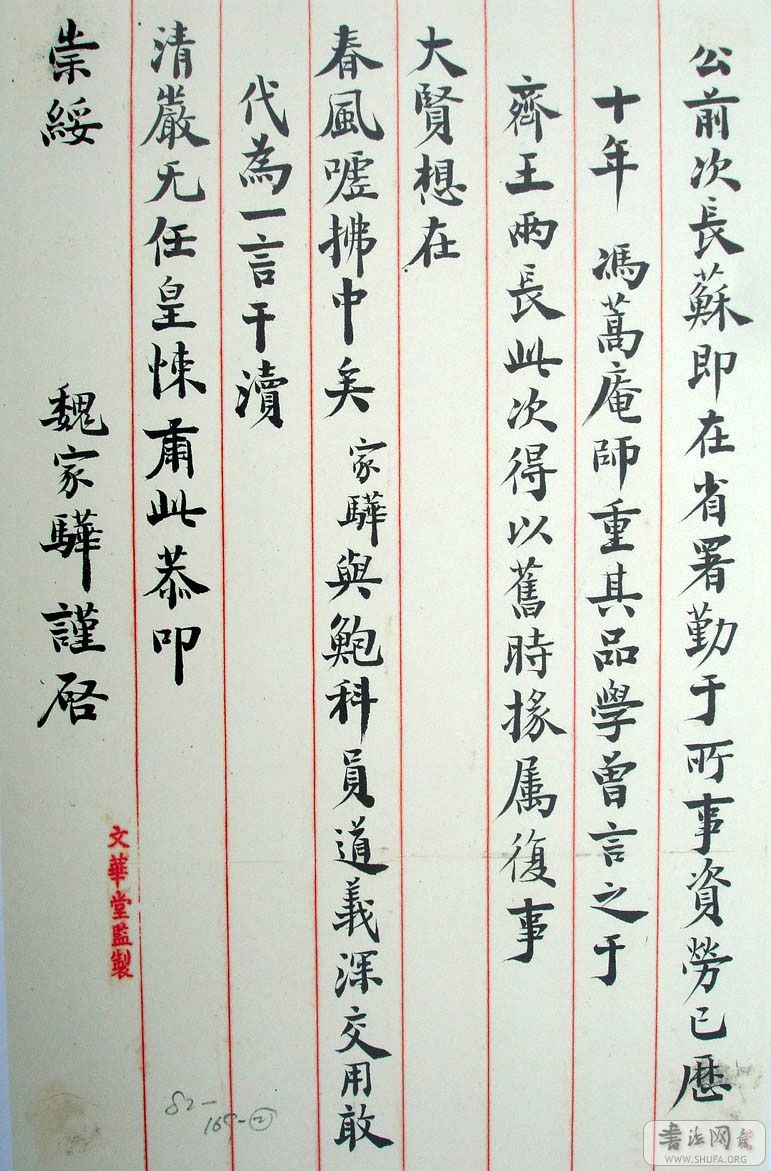 公前次長蘇即在省署勤于所事資勞已歷
十年 馮蒿庵師重其品學曾言之于
齊王兩長此次得以舊時掾属復事
大賢想在
春風嘘拂中矣 家驊與鮑科員道義深交用敢
代為一言干瀆
清嚴无任皇悚肅此恭叩
崇綏 魏家驊謹啓
文華堂監製
82-
169-②
書法网
WWW.SHUFA.ORG